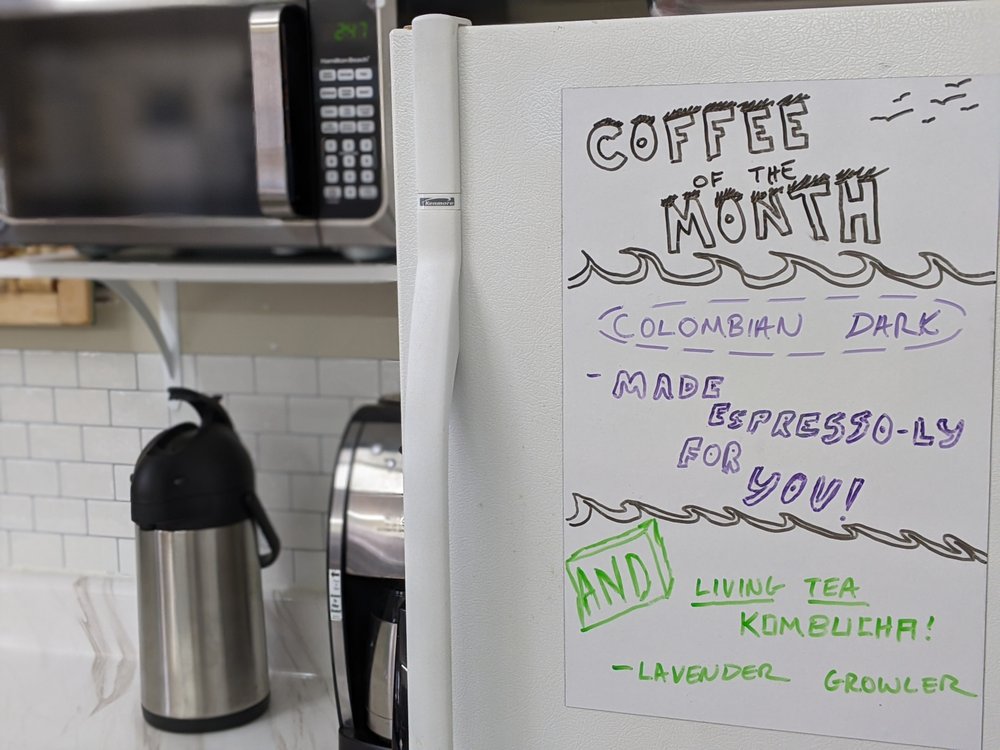 2:47
HamiltonBeach
Kenmore
COFFEE
OF THE
MONTH
COLOMBIAN DARK
- MADE
ESPRESSO-LY
FOR
YOU!
AND
LIVING TEA
KOMBUCHA!
- LAVENDER GROWLER